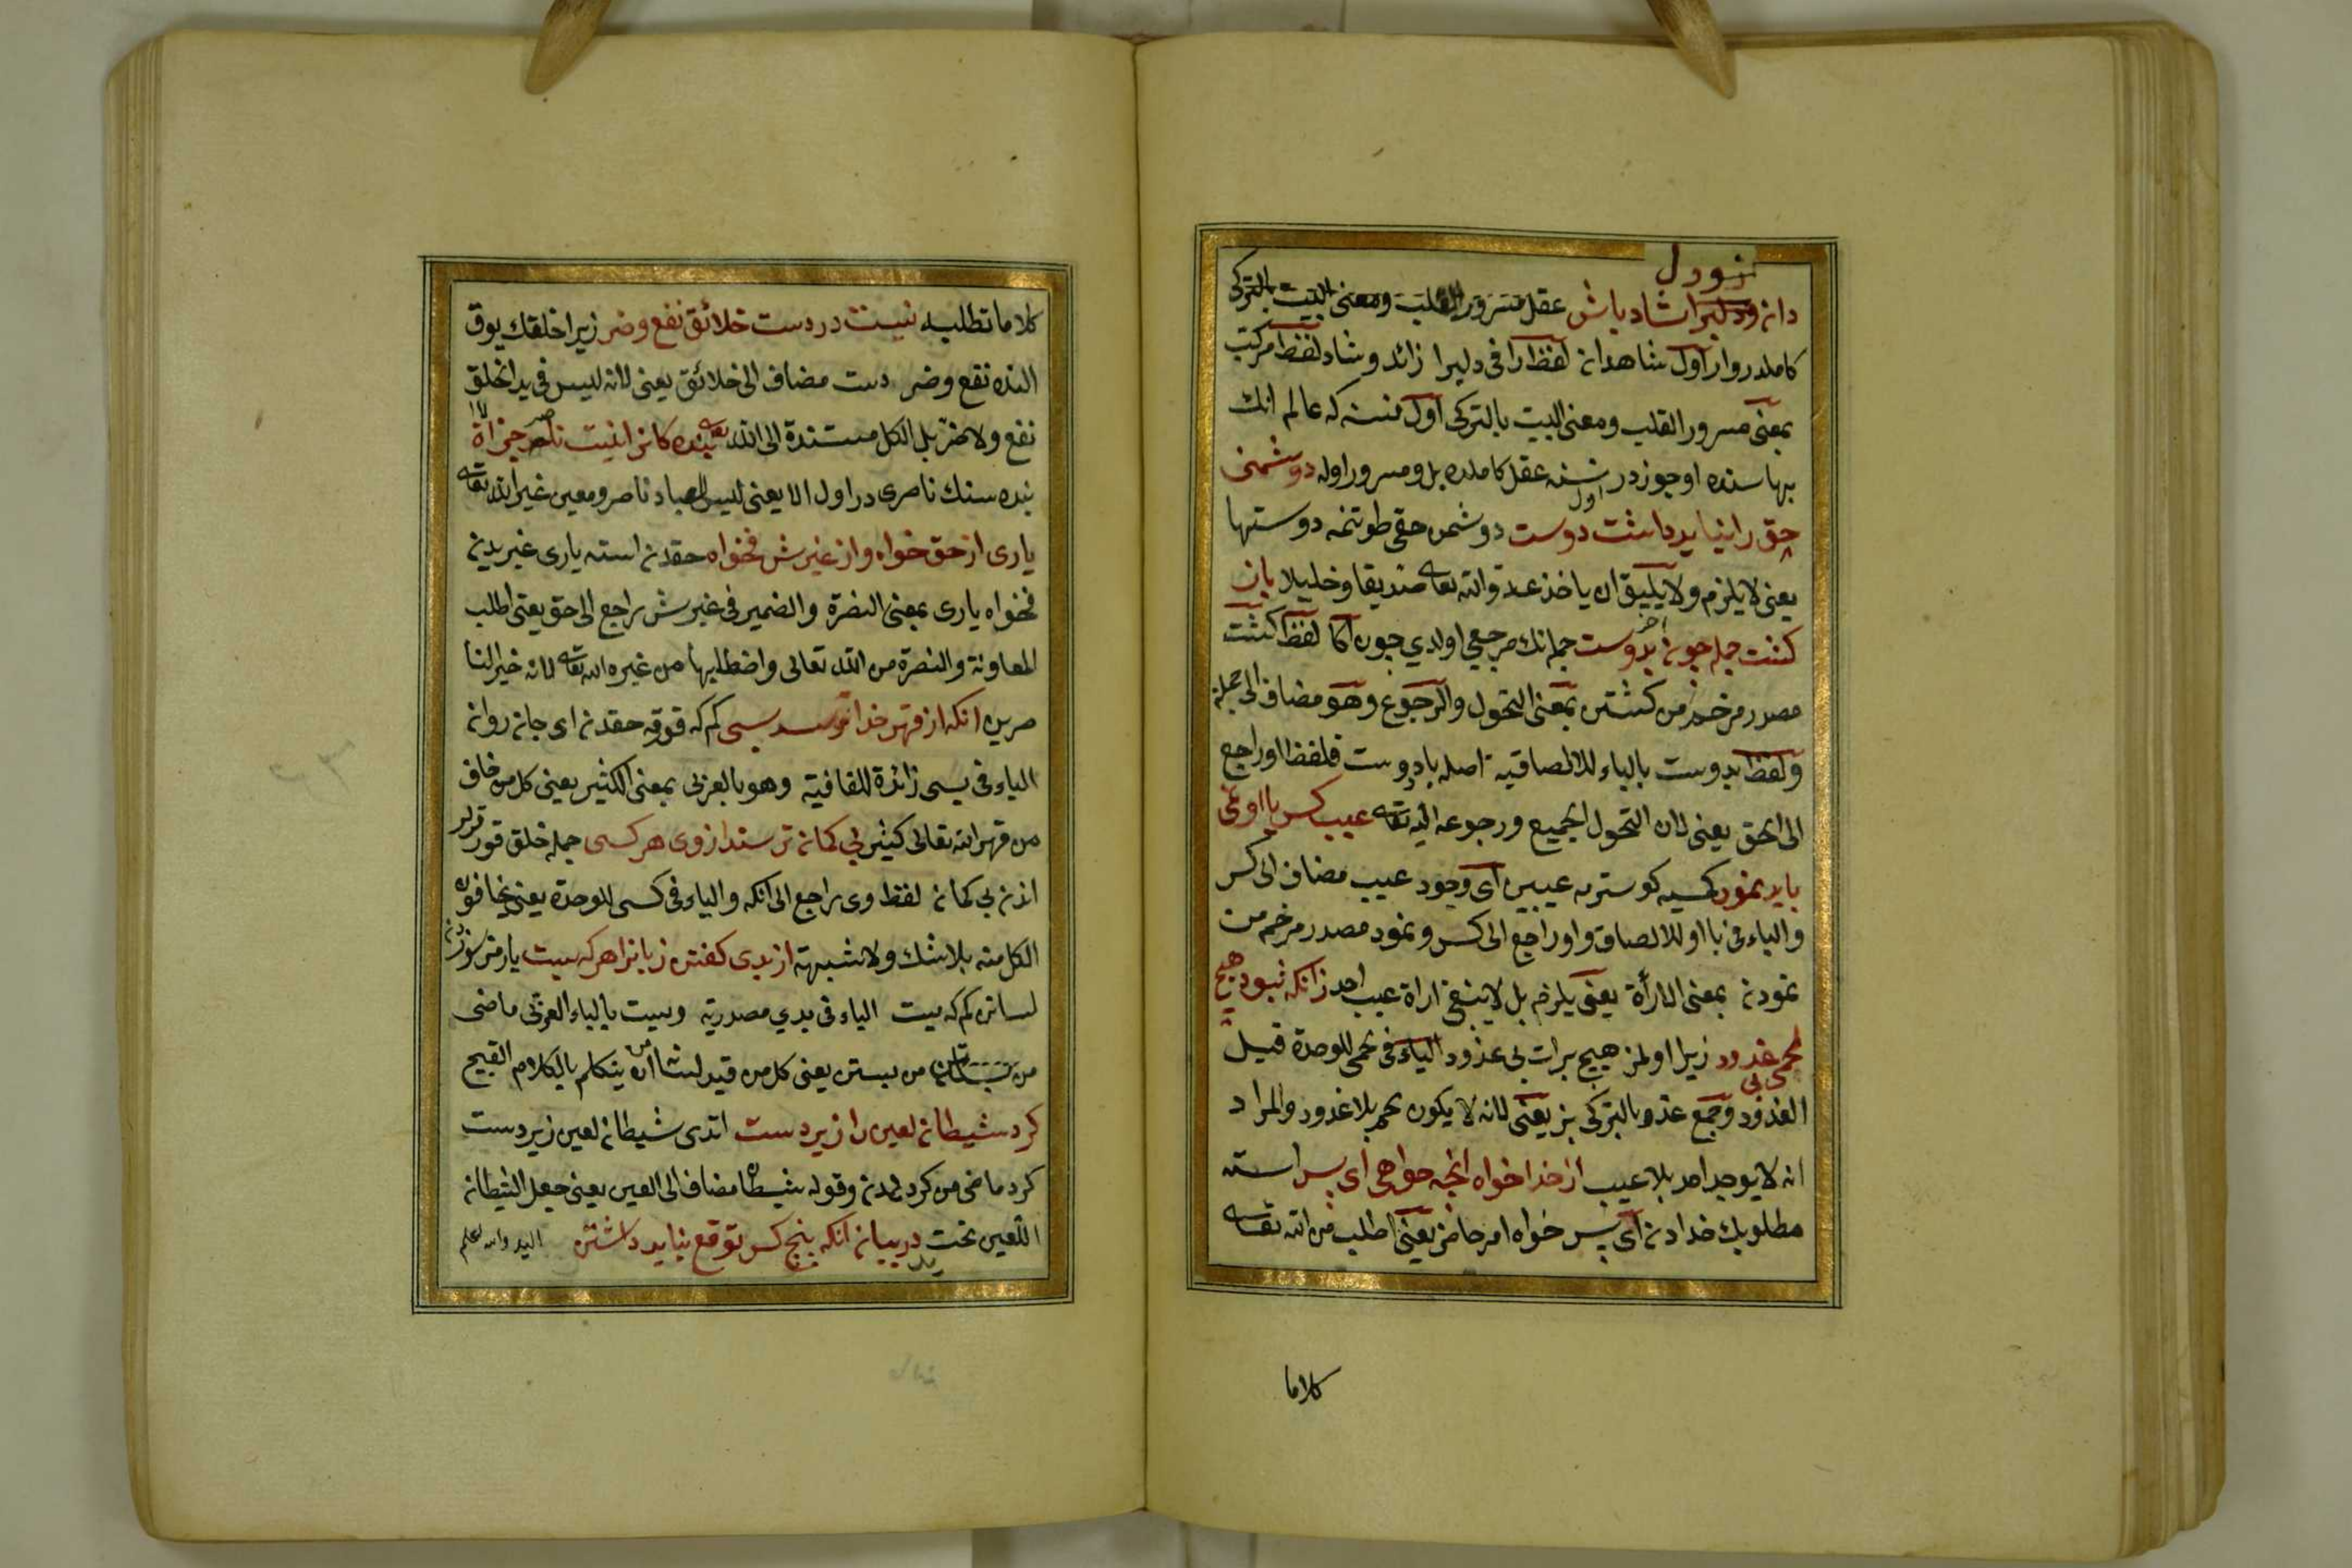 نبود دل
دان ودلبرا شاد باش عقل مسرور القلب ومعنى البيت بالتركى
كاملدر وار اول شاهدان لفظ را فى دلبرا زائد وشاد لفظ مركب
بمعنى مسرور القلب ومعنى البيت بالتركى اول نسنه كه عالم انك
بهاسنده اوجوزدر نسنه عقل كاملده بل ومسرور اوله دوشمنى
اول
حق را نبايد داشت دوست دوشمن حقى طوتمه دوستها
يعنى لا يلزم ولا يليق ان ياخذ عدو الله تعا صديقا وخليلا باز
كشت جمله جون بدوست جمله نك مرجعى اولدى جون اكا لفظ كشت
مصدر مرخم من كشتن بمعنى التحول والرجوع وهو مضاف الى جمله
ولفظ بدوست بالباء للالصاقيه اصله باودوست فلفظ او راجع
الى الحق يعنى لان التحول الجميع ورجوعه اليه تعا عيب كس با او نمى
بايد نمود كسيه كوسترمه عيبين اى وجود عيب مضاف الى كس
والباء فى با او للالصاق واو راجع الى كس ونمود مصدر مرخم من
نمودن بمعنى الارأة يعنى يلزم بل لا ينبغ اراة عيب احد زانكه نبود هيچ
لحمى غدود زيرا اولمز هيچ برات بى غدود الياء فى لحمى للوحدة قيل
بى
الغدود وجمع غدو بالتركى بز يعنى لانه لا يكون لحم بلا غدود والمراد
انه لا يوجد احد بلا عيب از خدا خواه انچه خواهى اى پسر استه
مطلوبك خدادن اى پسر خواه امر حاضر يعنى اطلب من الله تعا
كلاما
كلاما تطلبه نيست در دست خلائق نفع وضر زيرا خلقك يوق
النده نفع وضر دست مضاف الى خلائق يعنى لانه ليس فى يد الخلق
نفع ولا ضر بل الكل مستندة الى الله تعا بنده كانرا نيست ناصر جز اله
بنده سنك ناصرى در اول الا يعنى ليس للعباد ناصر ومعين غير الله تعا
يارى از حق خواه واز غيرش مخواه حقدن استه يارى غيريدن
مخواه يارى بمعنى النصرة والضمير فى غيرش راجع الى حق يعنى اطلب
المعاونة والنصرة من الله تعالى ولا تطلبها من غيره الله تعا لانه خير النا
صرين انكه از قهر خدا ترسد بسى كم كه قورقه حقدن اى جان روان
الياء فى بسى زائدة للقافية وهو بالعربى بمعنى الكثير يعنى كل من خاف
من قهر الله تعالى كثير بى كمان ترسند از وى هر كسى جمله خلق قورقرلر
اندن بى كمان لفظ وى راجع الى انكه والياء فى كسى للوحدة يعنى يخافون
الكل منه بلا شك ولا شبهة از بدى كفتن زبانرا هركه بست يارمز سوزدن
لسانن كم كه بست الياء فى بدى مصدرية وبست بالباء العربى ماضى
من بستن يعنى كل من قيد لسانه من ان يتكلم بالكلام القبيح
كرد شيطان لعين را زير دست اتدى شيطان لعين زير دست
كرد ماضى من كردندن وقوله شيطان مضاف الى العين يعنى جعل الشيطان
اللعين تحت يده در بيان انكه پنج كس توقع نبايد داشتن اليه والله اعلم